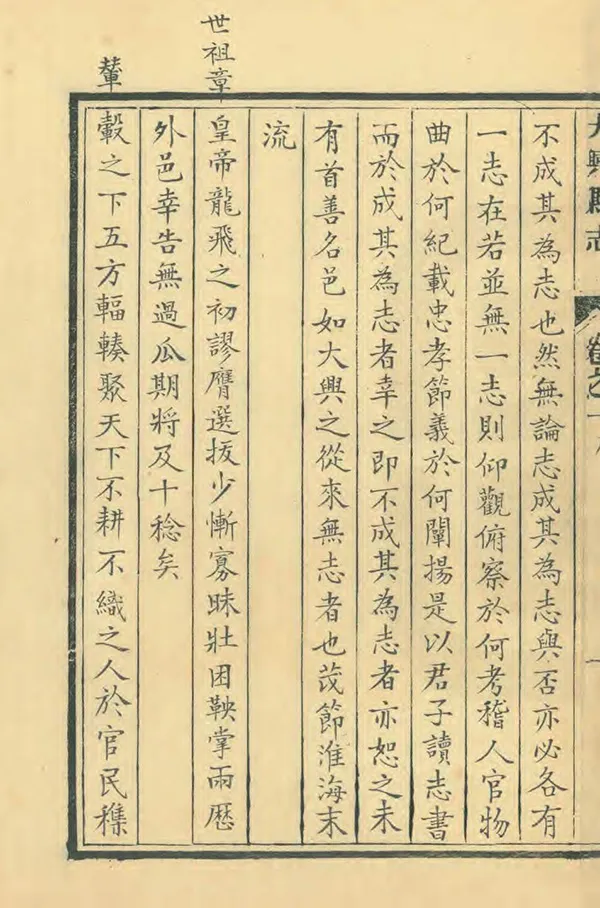 大興縣志 卷之
不成其為志也然無論志成其為志與否亦必各有
一志在若並無一志則仰觀俯察於何考稽人官物
曲於何紀載忠孝節義於何闡揚是以君子讀志書
而於成其為志者幸之即不成其為志者亦恕之未
有首善名邑如大興之從來無志者也茂節淮海末
流
世祖章皇帝龍飛之初謬膺選拔少慚寡昧壯困鞅掌兩歷
外邑幸告無過瓜期將及十稔矣
輦轂之下五方輻輳聚天下不耕不織之人於官民